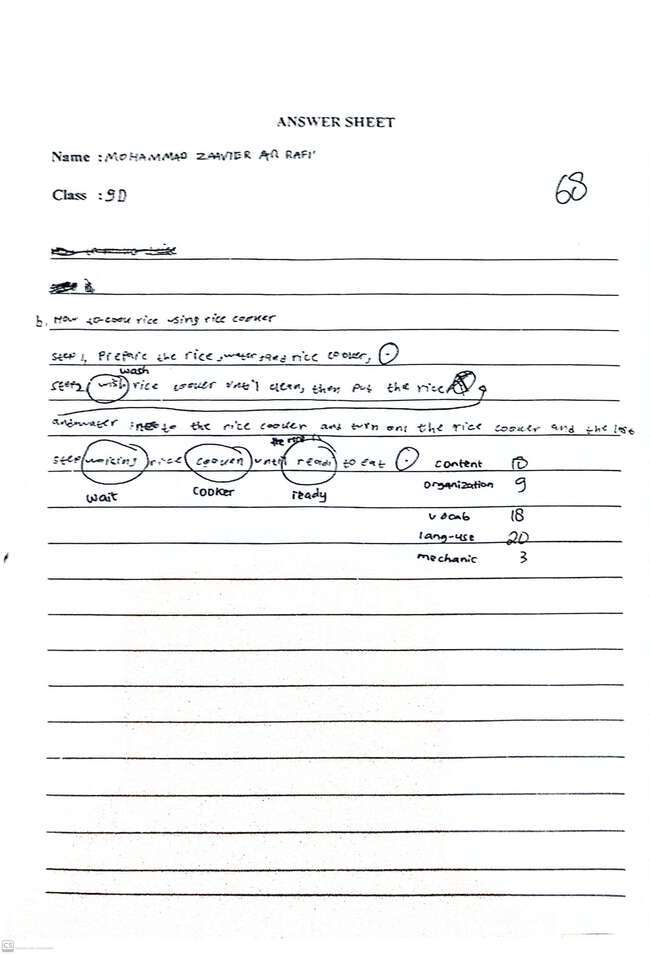 ANSWER SHEET
Name : MOHAMMAD ZAAVIER AR RAFI'
Class : 9D
68
b. How to cook rice using rice cooker
step 1, Prepare the rice, water, and rice cooker, .
wash
step 2 wish rice cooker until clean, then put the rice
and water into the rice cooker and turn on the rice cooker and the last
the rice is
step waicing rice cooven until readi to eat .
wait cooker ready
content 18
organization 9
vocab 18
lang-use 20
mechanic 3
CS